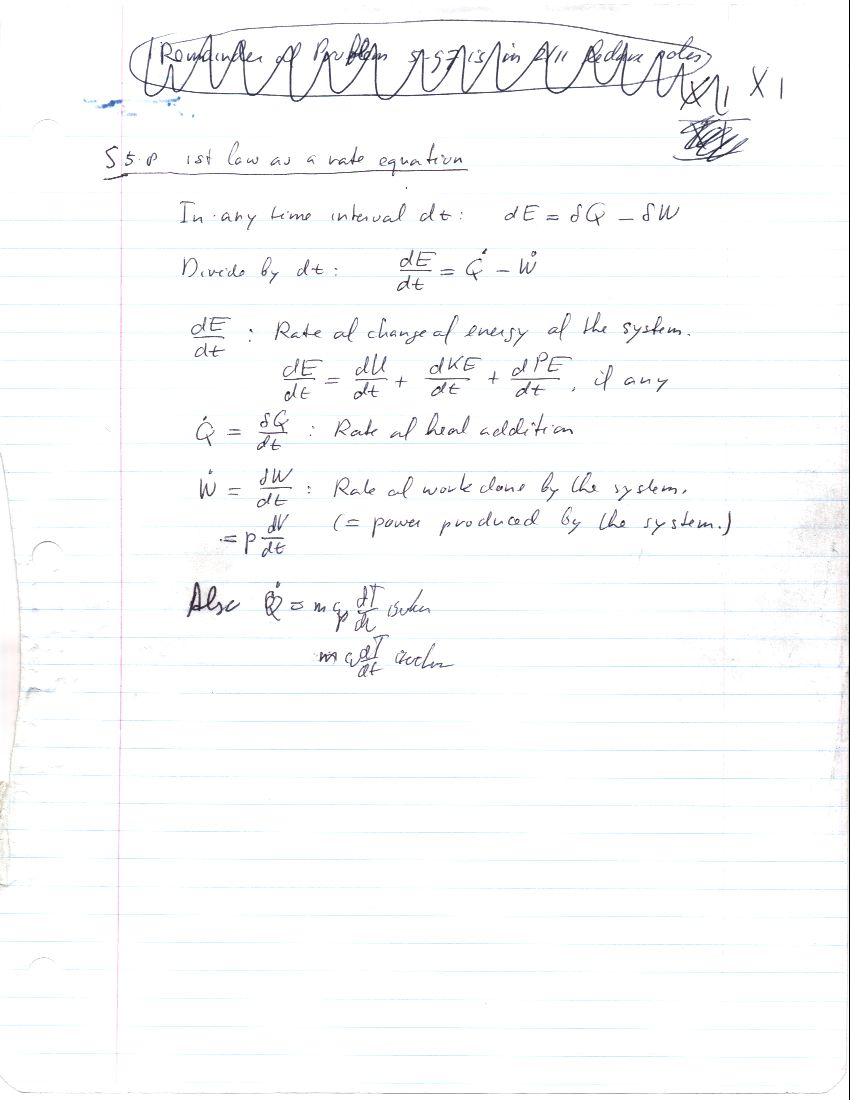 (Remainder of Problem 5-97 is in lecture notes)
XI XI
§ 5.8 1st law as a rate equation
In any time interval dt: dE = δQ − δW
Divide by dt: dE/dt = Q̇ − Ẇ
dE/dt : Rate of change of energy of the system.
dE/dt = dU/dt + dKE/dt + dPE/dt, if any
Q̇ = δQ/dt : Rate of heat addition
Ẇ = δW/dt : Rate of work done by the system.
= p dV/dt (= power produced by the system.)
Also Q̇ = m cp dT/dt
m cv dT/dt